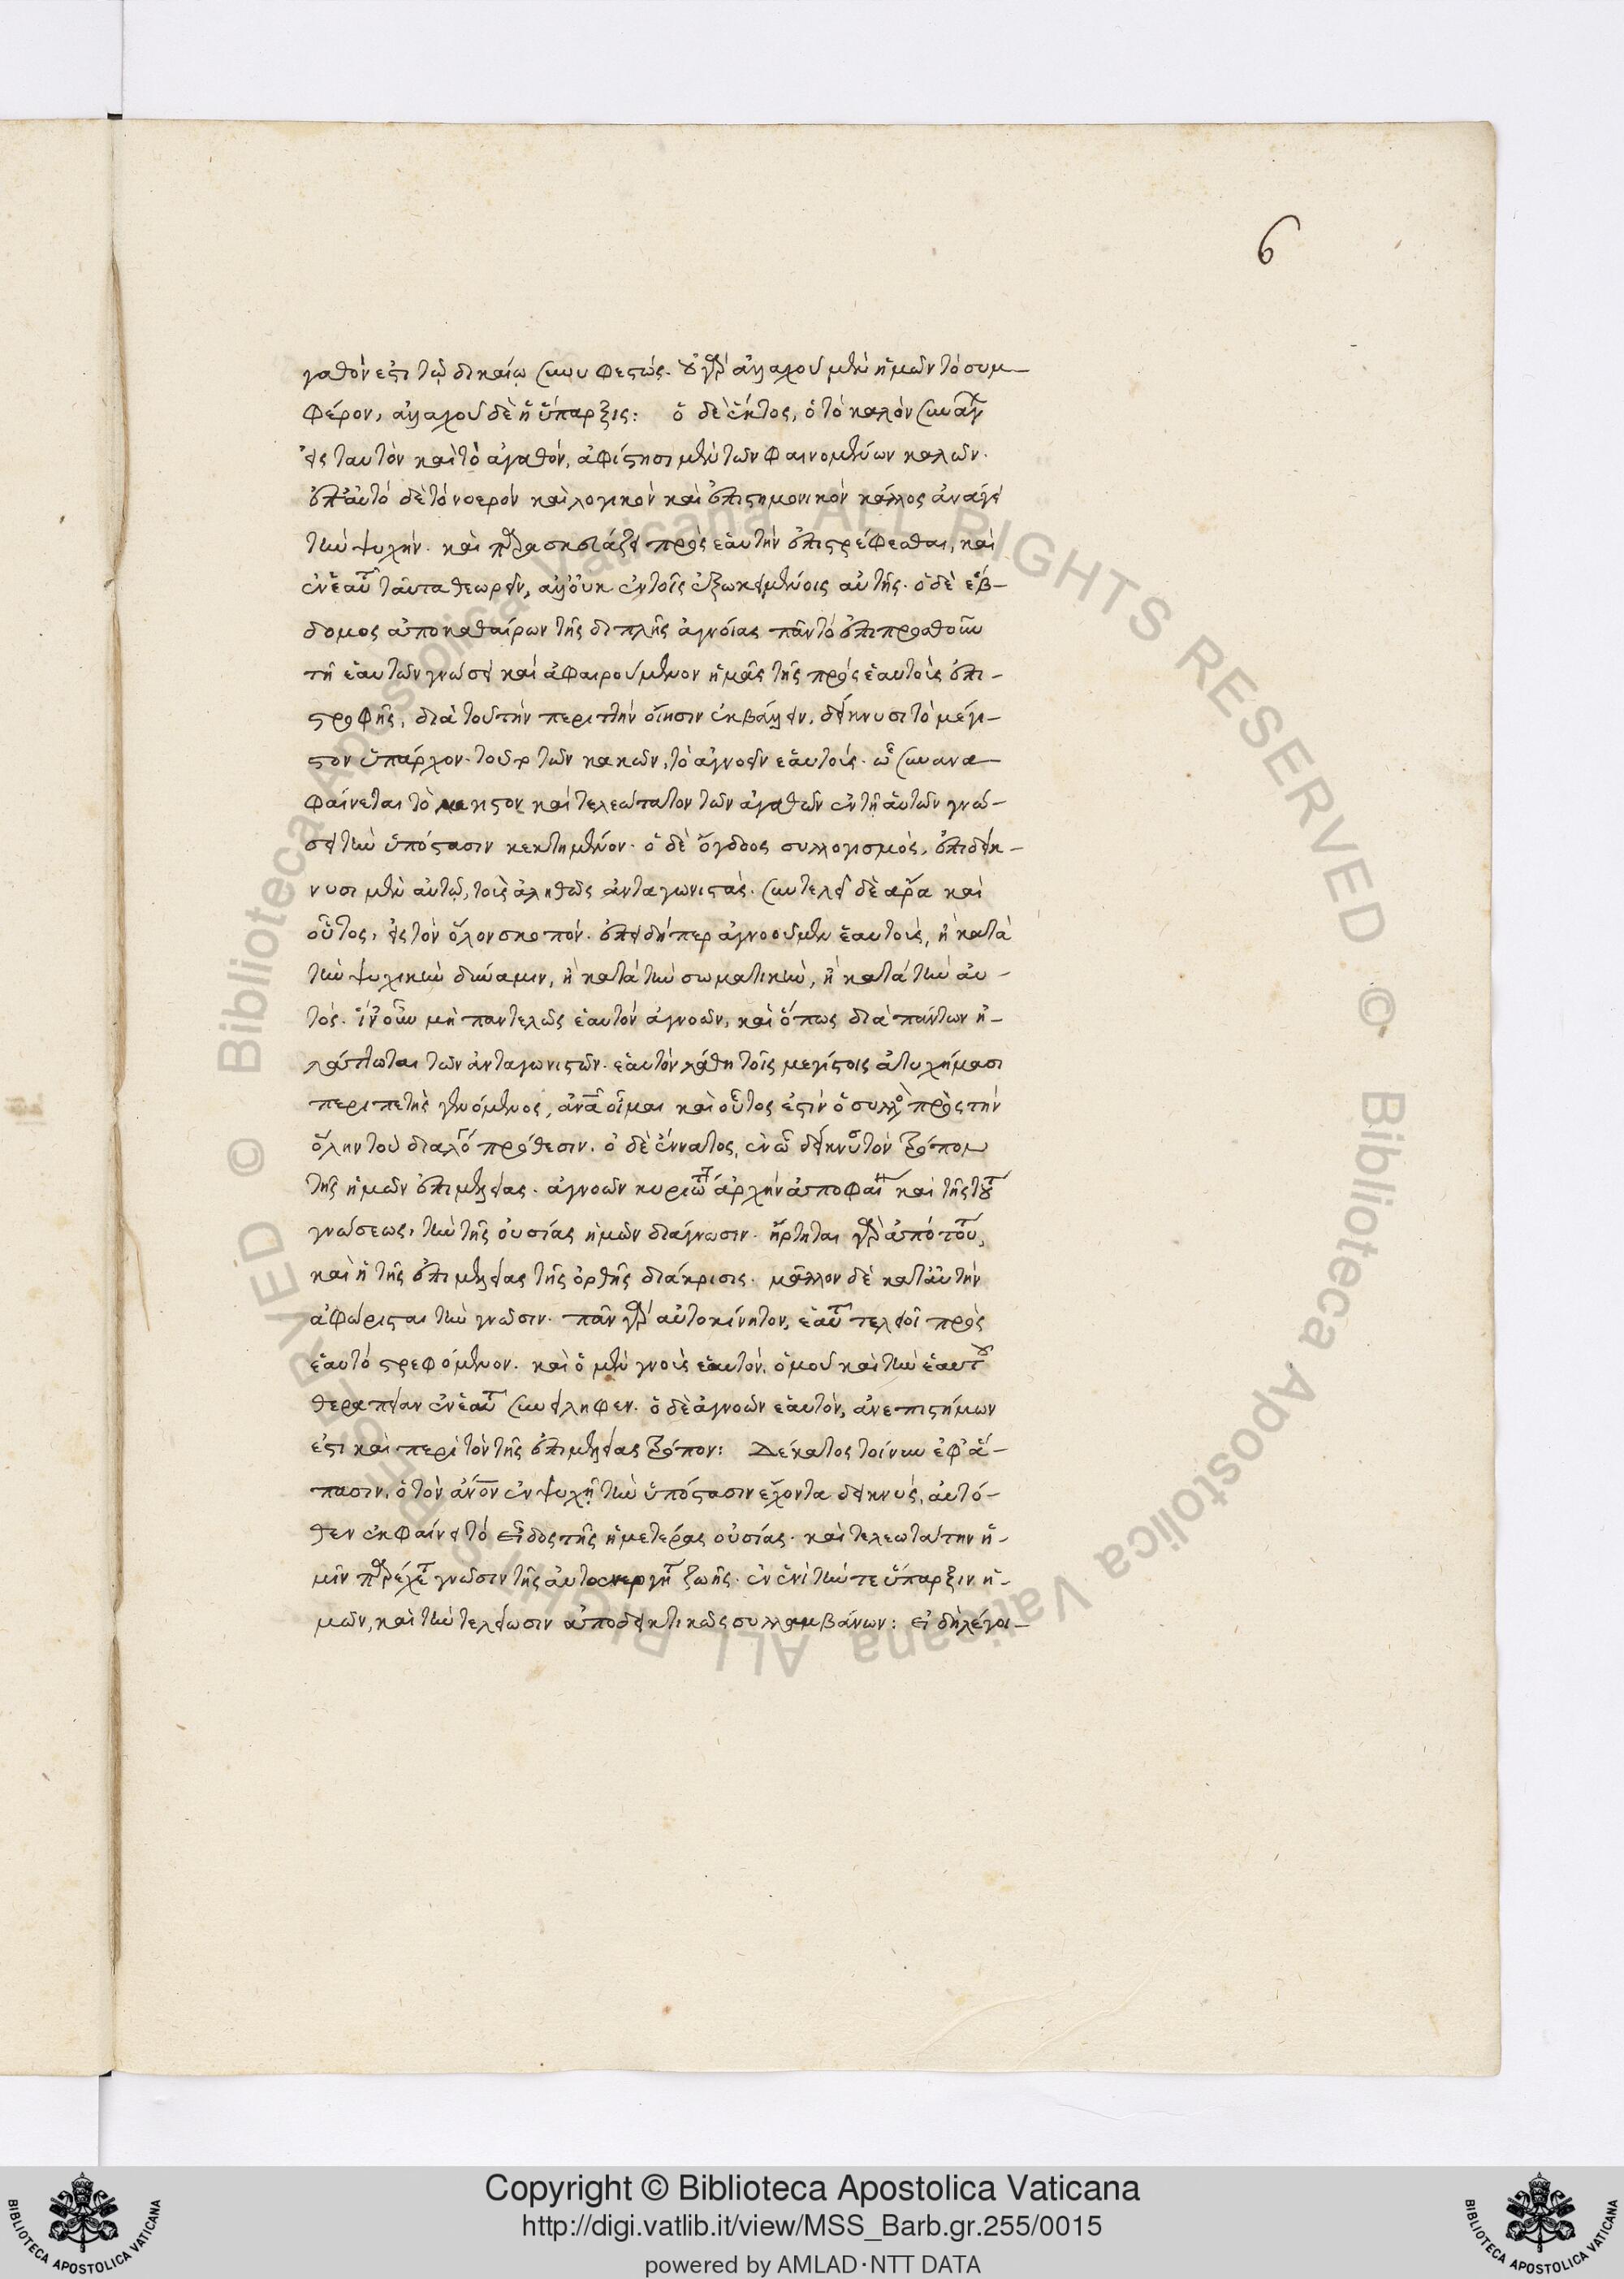 6
γαθόν ἐστι τῷ δικαίῳ συνυφεστώς. οὐ γὰρ ἀλλαχοῦ μὲν ἡμῶν τὸ συμ-
φέρον, ἀλλαχοῦ δὲ ἡ ὕπαρξις: ὁ δὲ ἕκτος, ὁ τὸ καλὸν συνάγων
εἰς ταυτὸν καὶ τὸ ἀγαθόν, ἀφίστησι μὲν τῶν φαινομένων καλῶν.
ἐπ' αὐτὸ δὲ τὸ νοερὸν καὶ λογικὸν καὶ ἐπιστημονικὸν κάλλος ἀνάγει
τὴν ψυχήν. καὶ παρασκευάζει πρὸς ἑαυτὴν ἐπιστρέφεσθαι, καὶ
ἐν ἑαυτῇ ταῦτα θεωρεῖν, ἀλλ' οὐκ ἐν τοῖς ἐξωκειμένοις αὐτῆς. ὁ δὲ ἕβ-
δομος ἀποκαθαίρων τῆς διπλῆς ἀγνοίας πᾶν τὸ ἐπιπροσθοῦν
τῇ ἑαυτῶν γνώσει καὶ ἀφαιρούμενον ἡμᾶς τῆς πρὸς ἑαυτοὺς ἐπι-
στροφῆς, διὰ τοῦ τὴν περιττὴν οἴησιν ἐκβάλλειν, δείκνυσι τὸ μέγι-
στον ὑπάρχον τουτὶ τῶν κακῶν, τὸ ἀγνοεῖν ἑαυτούς. ᾧ συνανα-
φαίνεται τὸ μέγιστον καὶ τελεώτατον τῶν ἀγαθῶν ἐν τῇ αὑτῶν γνώ-
σει τὴν ὑπόστασιν κεκτημένον. ὁ δὲ ὄγδοος συλλογισμός, ἐπιδείκ-
νυσι μὲν αὐτῷ, τοὺς ἀληθῶς ἀνταγωνιστάς. συντελεῖ δὲ ἄρα καὶ
οὗτος, εἰς τὸν ὅλον σκοπόν. ἐπειδήπερ ἀγνοοῦμεν ἑαυτούς, ἢ κατὰ
τὴν ψυχικὴν δύναμιν, ἢ κατὰ τὴν σωματικήν, ἢ κατὰ τὴν ἐκ-
τός. ἵν' οὖν μὴ παντελῶς ἑαυτὸν ἀγνοῶν, καὶ ὅπως διὰ πάντων ἠ-
λάττωται τῶν ἀνταγωνιστῶν. ἑαυτὸν λάθῃ τοῖς μεγίστοις ἀτυχήμασι
περιπετὴς γενόμενος, ἀναγκαῖος οἶμαι καὶ οὗτός ἐστιν ὁ συλλογισμὸς πρὸς τὴν
ὅλην τοῦ διαλόγου πρόθεσιν. ὁ δὲ ἔννατος, ἐν ᾧ δείκνυσι τὸν τρόπον
τῆς ἡμῶν ἐπιμελείας. ἀγνοῶν κυριωτάτην ἀρχὴν ἀποφαίνει καὶ τῆς τούτου
γνώσεως, τὴν τῆς οὐσίας ἡμῶν διάγνωσιν. ἤρτηται γὰρ ἀπὸ ταύτης,
καὶ ἡ τῆς ἐπιμελείας τῆς ὀρθῆς διάκρισις. μᾶλλον δὲ κατ' αὐτὴν
ἀφώρισται τὴν γνῶσιν. πᾶν γὰρ αὐτοκίνητον, ἑαυτὸ τελειοῖ πρὸς
ἑαυτὸ στρεφόμενον. καὶ ὁ μὲν γνοὺς ἑαυτόν, ὁμοῦ καὶ τὴν ἑαυτοῦ
θεραπείαν ἐν ἑαυτῷ συνείληφεν. ὁ δὲ ἀγνοῶν ἑαυτόν, ἀνεπιστήμων
ἐστὶ καὶ περὶ τὸν τῆς ἐπιμελείας τρόπον: Δέκατος τοίνυν ἐφ' ἅ-
πασιν, ὁ τὸν ἄνθρωπον ἐν ψυχῇ τὴν ὑπόστασιν ἔχοντα δεικνύς, αὐτό-
θεν ἐκφαίνει τὸ εἶδος τῆς ἡμετέρας οὐσίας. καὶ τελεωτάτην ἡ-
μῖν παρέχεται γνῶσιν τῆς αὐτοενεργήτου ζωῆς. ἐν ἑνὶ τήν τε ὕπαρξιν ἡ-
μῶν, καὶ τὴν τελείωσιν ἀποδεικτικῶς συλλαμβάνων: εἰ δὴ λέγοι-
Copyright © Biblioteca Apostolica Vaticana
http://digi.vatlib.it/view/MSS_Barb.gr.255/0015
powered by AMLAD·NTT DATA
BIBLIOTECA APOSTOLICA VATICANA
BIBLIOTECA APOSTOLICA VATICANA